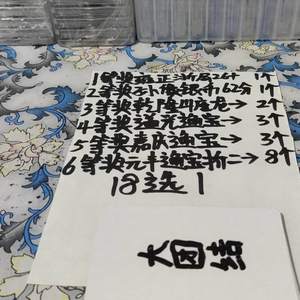 1等奖雍正浙局26+ 1个
2等奖孙像银币62分 1个
3等奖乾隆出库龙→ 2个
4等奖通元通宝→ 3个
5等奖嘉庆通宝→ 3个
6等奖元丰通宝折二→ 8个
18选1
大团结